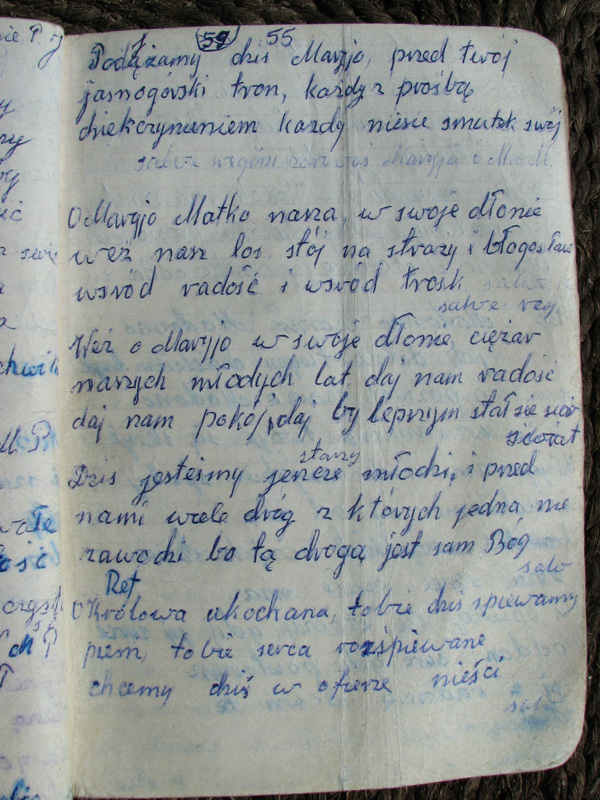 59 55
Podążamy dziś Maryjo, przed twój
jasnogórski tron, każdy z prośbą
dziekczynieniem każdy niesie smutek swój
salve Maryja o
O Maryjo Matko nasza, w swoje dłonie
weź nasz los, stój na straży i błogosław
wsród radość i wsród trosk salve
salve reg.
Weź o Maryjo w swoje dłonie, ciężar
naszych młodych lat, daj nam radość
daj nam pokój, daj by lepszym stał sie świat
świat
starzy
Dzis jesteśmy jeszcze młodzi, i przed
nami wiele dróg z których jedna nie
zawodzi bo tą drogą jest sam Bóg
salv
Ref
O Królowa ukochana, tobie dziś spiewamy
piesń, tobie serca rozśpiewane
chcemy dziś w ofierze nieści
salv